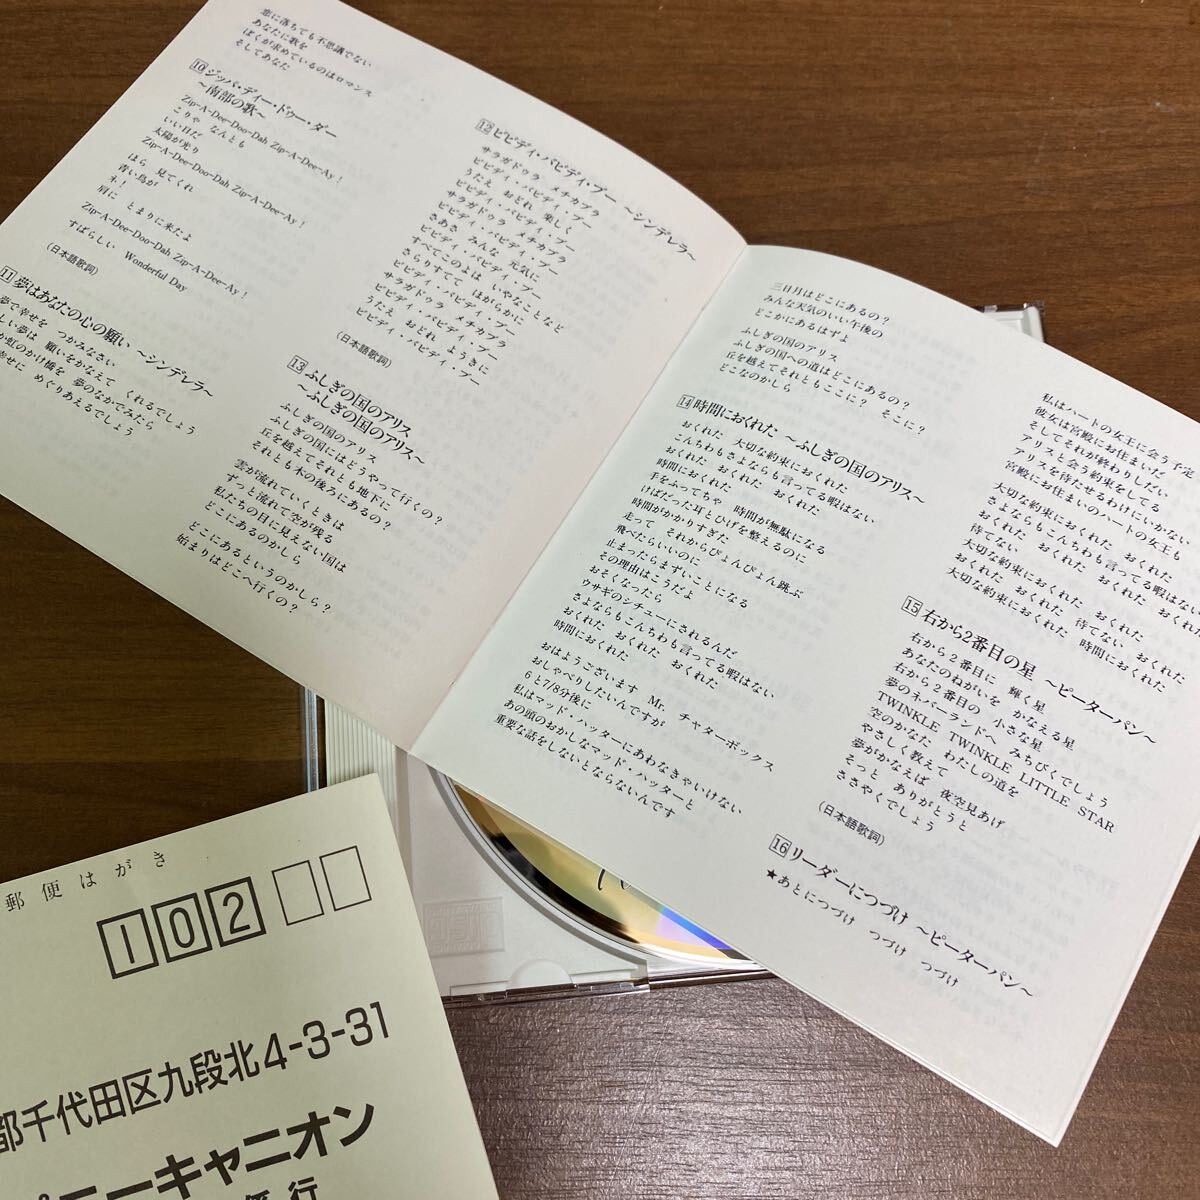 恋に落ちても不思議でない
あなたに歌を
ぼくが求めているのはロマンス
そしてあなた
10 ジッパ・ディー・ドゥー・ダー
〜南部の歌〜
Zip-A-Dee-Doo-Dah Zip-A-Dee-Ay！
こりゃ なんとも
いい日だ
太陽が光り
Zip-A-Dee-Doo-Dah Zip-A-Dee-Ay！
ほら 見てくれ
青い鳥が
ネ！
肩に とまりに来たよ
Zip-A-Dee-Doo-Dah Zip-A-Dee-Ay！
すばらしい Wonderful Day
(日本語歌詞)
11 夢はあなたの心の願い 〜シンデレラ〜
夢で幸せを つかみなさい
しい夢は 願いをかなえて くれるでしょう
か虹のかけ橋を 夢のなかでみたら
幸せに めぐりあえるでしょう
12 ビビディ・バビディ・ブー 〜シンデレラ〜
サラガドゥラ メチカブラ
ビビディ・バビディ・ブー
うたえ おどれ 楽しく
ビビディ・バビディ・ブー
サラガドゥラ メチカブラ
ビビディ・バビディ・ブー
さあさ みんな 元気に
ビビディ・バビディ・ブー
すべてこのよは いやなことなど
さらりすてて ほがらかに
ビビディ・バビディ・ブー
サラガドゥラ メチカブラ
ビビディ・バビディ・ブー
うたえ おどれ ようきに
ビビディ・バビディ・ブー
(日本語歌詞)
13 ふしぎの国のアリス
〜ふしぎの国のアリス〜
ふしぎの国のアリス
ふしぎの国にはどうやって行くの？
丘を越えてそれとも地下に
それとも木の後ろにあるの？
雲が流れていくときは
ずっと流れて空が残る
私たちの目に見えない国は
どこにあるのかしら
どこにあるというのかしら？
始まりはどこへ行くの？
三日月はどこにあるの？
みんな天気のいい午後の
どこかにあるはずよ
ふしぎの国のアリス
ふしぎの国への道はどこにあるの？
丘を越えてそれともここに？ そこに？
どこなのかしら
14 時間におくれた 〜ふしぎの国のアリス〜
おくれた 大切な約束におくれた
こんちわもさよならも言ってる暇はない
おくれた おくれた おくれた
時間におくれた
手をふってちゃ 時間が無駄になる
けばだった耳とひげを整えるのに
時間がかかりすぎた
走って それからぴょんぴょん跳ぶ
飛べたらいいのに
止まったらまずいことになる
その理由はこうだよ
おそくなったら
ウサギのシチューにされるんだ
さよならもこんちわも言ってる暇はない
おくれた おくれた おくれた
時間におくれた
おはようございます Mr. チャターボックス
おしゃべりしたいんですが
6と7/8分後に
私はマッド・ハッターにあわなきゃいけない
あの頭のおかしなマッド・ハッターと
重要な話をしないとならないんです
私はハートの女王に会う予定
彼女は宮殿にお住まいだ
そしてそれが終わりしだい
アリスと会う約束をしてる
アリスを待たせるわけにいかない
宮殿にお住まいのハートの女王も
大切な約束におくれた おくれた
さよならもこんちわも言ってる暇はない
おくれた おくれた おくれた おくれ
待てない
大切な約束におくれた おくれた
おくれた おくれた 待てない おくれた
大切な約束におくれた 時間におくれた
15 右から2番目の星 〜ピーターパン〜
右から2番目に 輝く星
あなたのねがいを かなえる星
右から2番目の 小さな星
夢のネバーランドへ みちびくでしょう
TWINKLE TWINKLE LITTLE STAR
空のかなた わたしの道を
やさしく教えて
夢がかなえば 夜空見あげ
そっと ありがとうと
ささやくでしょう
(日本語歌詞)
16 リーダーにつづけ 〜ピーターパン〜
★あとにつづけ つづけ つづけ
郵便はがき
102
都千代田区九段北4-3-31
ニーキャニオン
行